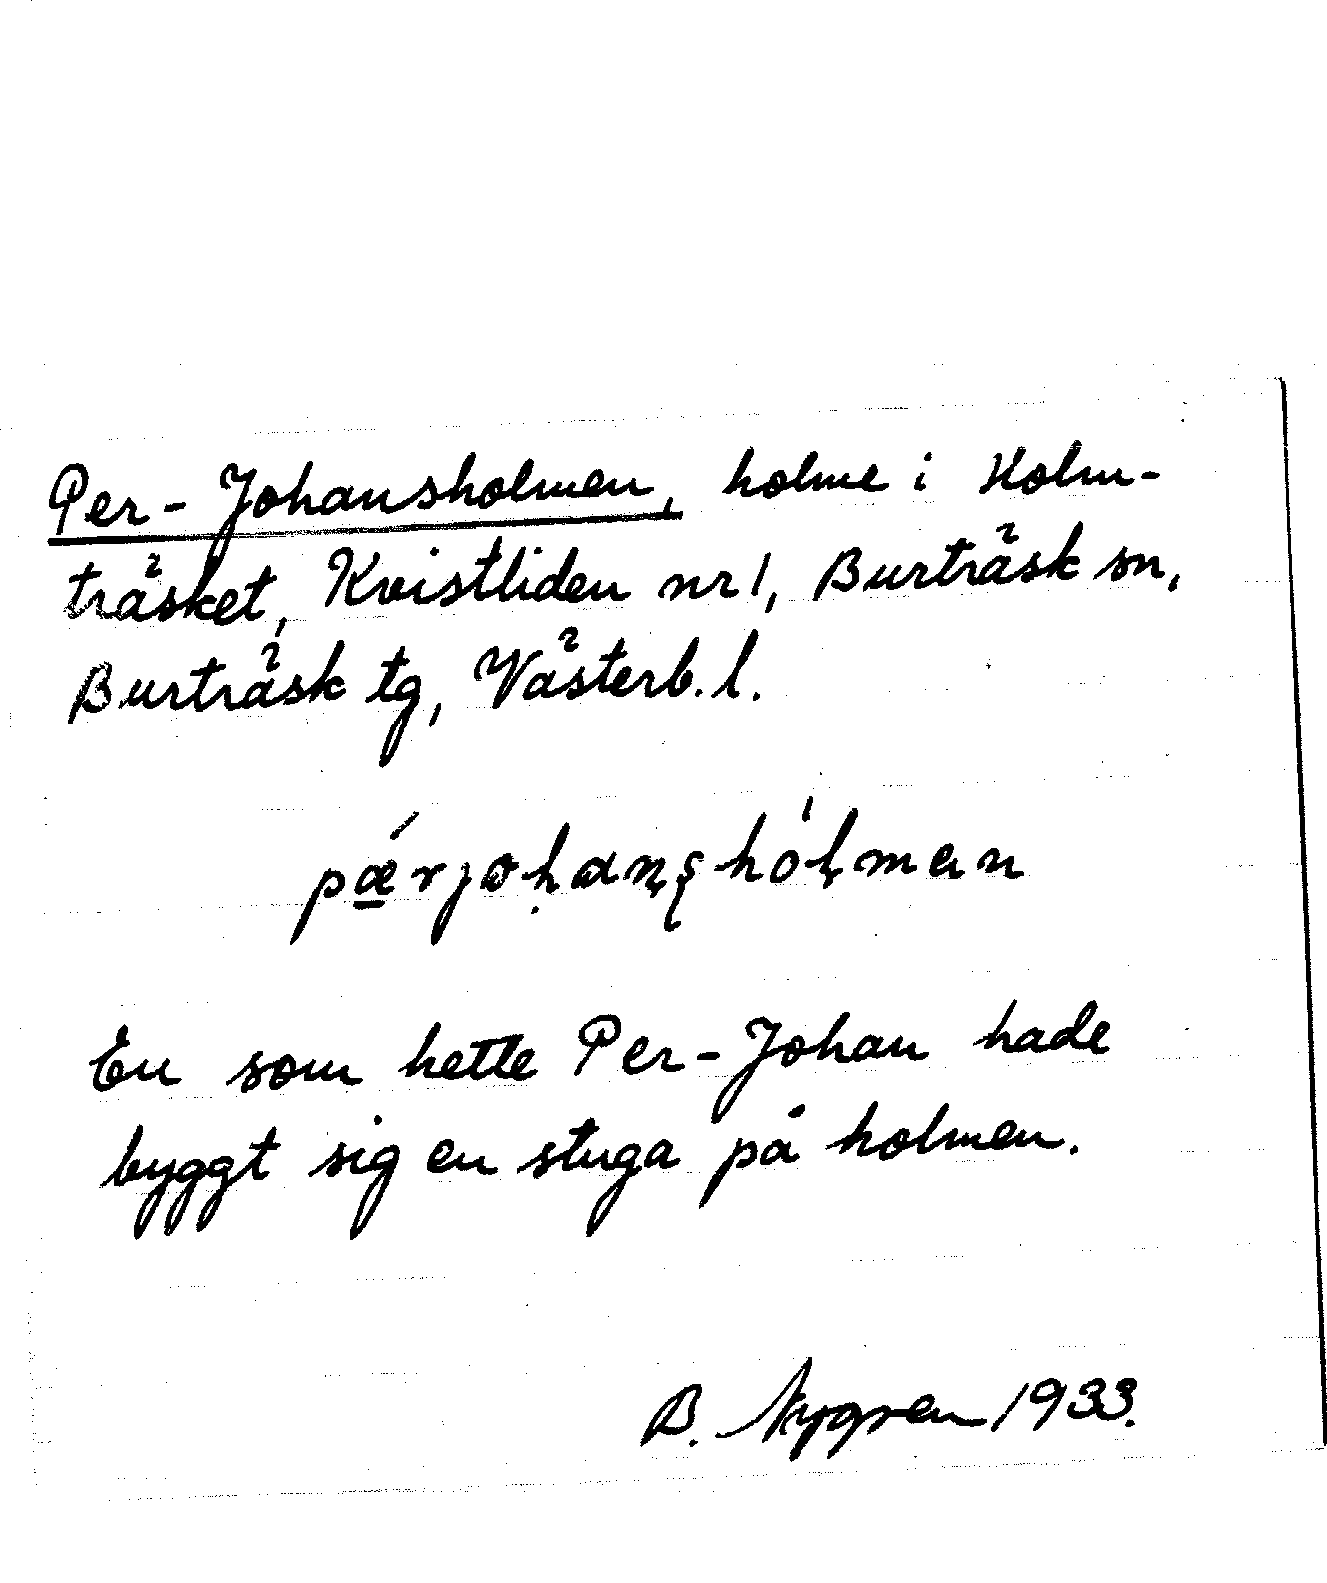 Per-Johansholmen, holme i Holm-
träsket, Kvistliden nr 1, Burträsk sn,
Burträsk tg, Västerb. l.
En som hette Per-Johan hade
byggt sig en stuga på holmen.
B. Nygren 1933.